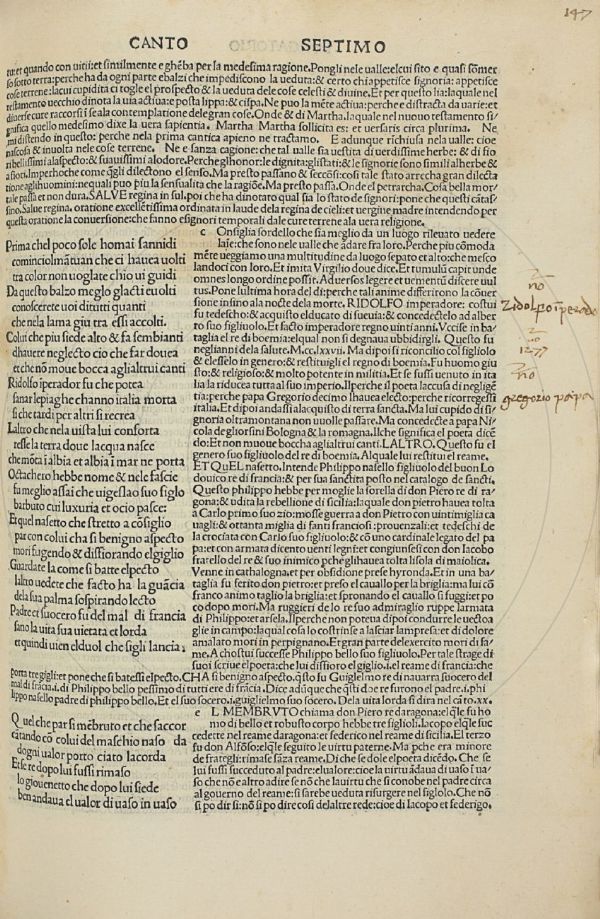 147
CANTO SEPTIMO
tu:et quando con uitii:et similmente e ghēba per la medesima ragione. Pongli nele ualle:el cui sito e quasi sōmer
so sotto terra:perche ha da ogni parte e balzi che impediscono la ueduta:& certo chi appetisce signoria: appetisce
cose terrene: la cui cupidita ci togle el prospecto & la ueduta dele cose celesti & diuine. Et per questo lia:laquale nel
testamento uecchio dinota la uita actiua:e posta lippa: & cispa. Ne puo la mēte actiua:perche e distracta da uarie:et
diuerse cure raccorsi ī se ala contemplatione dele gran cose. Onde & di Martha, laquale nel nuouo testamento si
gnifica quello medesimo dixe la uera sapientia. Martha Martha sollicita es: et uersaris circa plurima. Ne
mi distendo in questo: perche nela prima cantica apieno ne tractamo. E adunque richiusa nela ualle: cioe
nascosa & inuolta nele cose terrene. Ne e sanza cagione: che tal ualle sia uestita di uerdissime herbe: & di fio
ri bellissimi alaspecto: & suauissimi alodore. Perche glhonor: le dignita: glistati: & le signorie sono simili alherbe &
a fiori. Imperhoche come q̄gli dilectono el senso. Ma presto passano & seccōsi: cosi tale stato arreccha gran dilecta
tione aglihuomini: ne quali puo piu la sensualita che la ragiōe. Ma presto passa. Onde el petrarcha. Cosa bella mor
tale passa et non dura. SALVE regina in sul. poi che ha dinotato qual sia lo stato de signori: pone che questi cātas
sino. Salue regina. oratione excellētissima ordinata in laude dela regina de cieli: et uergine madre intendendo per
questa oratione la conuersione: che fanno e signori temporali dale cure terrene ala uera religione.
Prima chel poco sole homai sannidi
cominciol mātuan che ci hauea uolti
tra color non uoglate chio ui guidi
Da questo balzo meglo glacti e uolti
conoscerete uoi di tutti quanti
che nela lama giu tra essi accolti.
Colui che piu siede alto & fa sembianti
dhauere neglecto cio che far douea
et che nō moue bocca aglialtrui canti
Ridolfo iperador fu che potea
sanar le piaghe channo italia morta
si che tardi per altri si recrea
Laltro che nela uista lui conforta
resse la terra doue lacqua nasce
che mōta ī albia et albia ī mar ne porta
Octachero hebbe nome & nele fascie
fu meglio assai che uigeslao suo figlo
barbuto cui luxuria et ocio pasce:
Et quel nasetto che stretto a cōsiglio
par con colui cha si benigno aspecto
mori fugendo & disfiorando el giglio
Guardate la come si batte el pecto
laltro uedete che facto ha la guācia
dela sua palma sospirando lecto
Padre et suocero fu del mal di francia
sano la uita sua uietata et lorda
et quindi uien el duol che si gli lancia,
c Onsiglia sordello che sia meglio da un luogo rileuato uedere
lasie: che sono nele ualle che ādare fra loro. Perche piu cōmoda
mēte ueggiamo una multitudine da luogo sepato et alto: che mesco
landoci con loro. Et imita Virgilio doue dice. Et tumulū capit unde
omnes longo ordine possit. Aduersos legere et uenentū discere uul
tus. Pone lultima hora del di: perche tali anime differirono la cōuer
sione insino ala nocte dela morte. RIDOLFO imperadore: costui
fu tedescho: & acquisto el ducato di sueuia: & concedectelo ad alber
to suo figliuolo. Et facto imperadore regno uinti anni. Vccise in ba
taglia el re di boemia: el qual non si degnaua ubbidirgli. Questo fu
neglianni dela salute. M.cc.lxxvii. Ma dipoi si riconcilio col figliolo
& elesselo in genero: & restituigli el regno di boemia. Fu huomo giu
sto: & religioso: & molto potente in militia. Et se fussi uenuto in ita
lia riducea tutta al suo imperio. Ilperche il poeta laccusa di negligē
tia; perche papa Gregorio decimo lhauea electo: perche ricorregessi
italia. Et dipoi andassi ala acquisto di terra sancta. Ma lui cupido di si
gnoria oltramontana non uuolle passare. Ma concedette a papa Ni
cola degliorsini Bologna & la romagna. Ilche significa el poeta dicē
do: Et non moue boccha aglialtrui canti. LALTRO. Questo fu el
genero suo figliuolo del re di boemia. Al quale lui restitui el reame.
ET QVEL nasetto. Intende Philippo nasello figliuolo del buon Lo
douico re di francia: & per sua sanctita posto nel catalogo de sancti.
Questo philippo hebbe per moglie la sorella di don Piero re di ra-
gona: & udita la rebellione di sicilia: laquale don pierro hauea tolta
a Carlo primo suo zio: mosse guerra a don Pietro con uintimiglia ca
uagli: & ottanta miglia di santi franciosi: prouenzali: et tedeschi de
la crociata con Carlo suo figliuolo: & cō uno cardinale legato del pa
pa: et con armata dicento uenti legni: et congiunsesi con don Iacobo
fratello del re & suo inimico pche glihauea tolta lisola di maiolica.
Venne in cathalogna: et per obsidione prese hyronda. Et in una ba-
taglia su ferito don pietro: et preso el cauallo per la briglia: ma lui cō
franco animo taglio la briglia: et spronando el cauallo si fuggi: et po
co dopo mori. Ma ruggieri de lo re suo admiraglio ruppe larmata
di Philippo: et arsela. Ilperche non poteua dipoi condurre le uectoua
glie in campo: laqual cosa lo costrinse a lasciar lampresa: et di dolore
amalato mori in perpignano. Et gran parte del exercito mori di fa-
me. A chostui successe Philippo bello suo figliuolo. Per tale strage di
suoi scriue el poeta: che lui disfioro el giglio. i. el reame di francia: che
porta tre gigli: et pone che si batessi el pecto. CHA si benigno aspecto. q̄sto fu Guigelmo re di nauarra suocero del
mal di frācia. i. di Philippo bello pessimo di tutti e re di frācia. Dice adūque che q̄sti do e re furono el padre. i. phi
lippo nasello padre di philippo bello. Et el suo socero. i. guiglielmo suo socero. Dela uita lorda si dira nel ca.to. xx.
Quel che par si mēbruto et che saccor
cātando cō colui del maschio naso da
dogni ualor porto ciato la corda
Et se re dopo lui fussi rimaso
lo giouenetto che dopo lui siede
ben andaua el ualor di uaso in uaso
e L MEMBRVTO chiama don Piero re daragona: elq̄le fu ho
mo di bello et robusto corpo hebbe tre figlioli. Iacopo elq̄le suc
cedette nel reame daragona: et federico nel reame di sicilia. El terzo
fu don Alfōso: elq̄le seguito le uirtu paterne. Ma pche era minore
de frategli: rimase sāza reame. Di che se dole el poeta dicēdo. Che se
lui fussi succeduto al padre: elualore: cioe la uirtu ādaua di uaso ī ua
so che nō e altro a dire se nō che lauirtu che si conobe nel padre circa
al gouerno del reame: si sarebe ueduta risurgere nel figlolo. Che nō
si po dir si: nō si po dire cosi delaltre rede: cioe di Iacopo et federigo.
no
Ridolfo īperadore
no
1277
no
gregorio papa